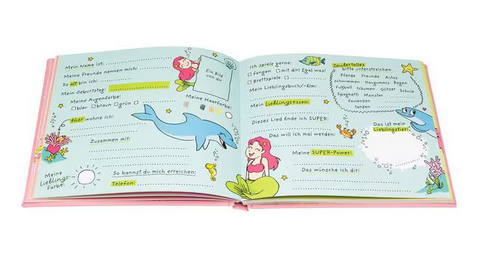 Mein Name ist:
Meine Freunde nennen mich:
So alt bin ich:
Mein Geburtstag:
Meine Augenfarbe:
blau braun grün
Hier wohne ich:
Zusammen mit:
Meine
Lieblings-
farbe:
So kannst du mich erreichen:
Telefon:
Ein Bild
von dir
Meine Haarfarbe:
Ich spiele gerne:
fangen mit dir Egal was!
Brettspiele
Mein Lieblingsbuch/-film:
Mein Lieblingsessen:
Dieses Lied finde ich SUPER:
Das will ich mal werden:
Meine SUPER-Power:
Das wünsche ich dir:
bitte unterstreichen
Pferde Freunde Autos
Schwimmen Regen Bagger
Fußball Schule
Spaghetti Monster
tanken
Das ist mein
Lieblingstier: